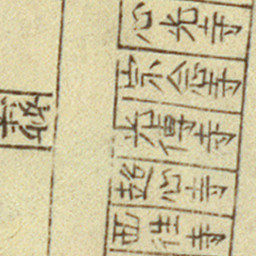 心光寺
宗念寺
光傳寺
超心寺
西往寺